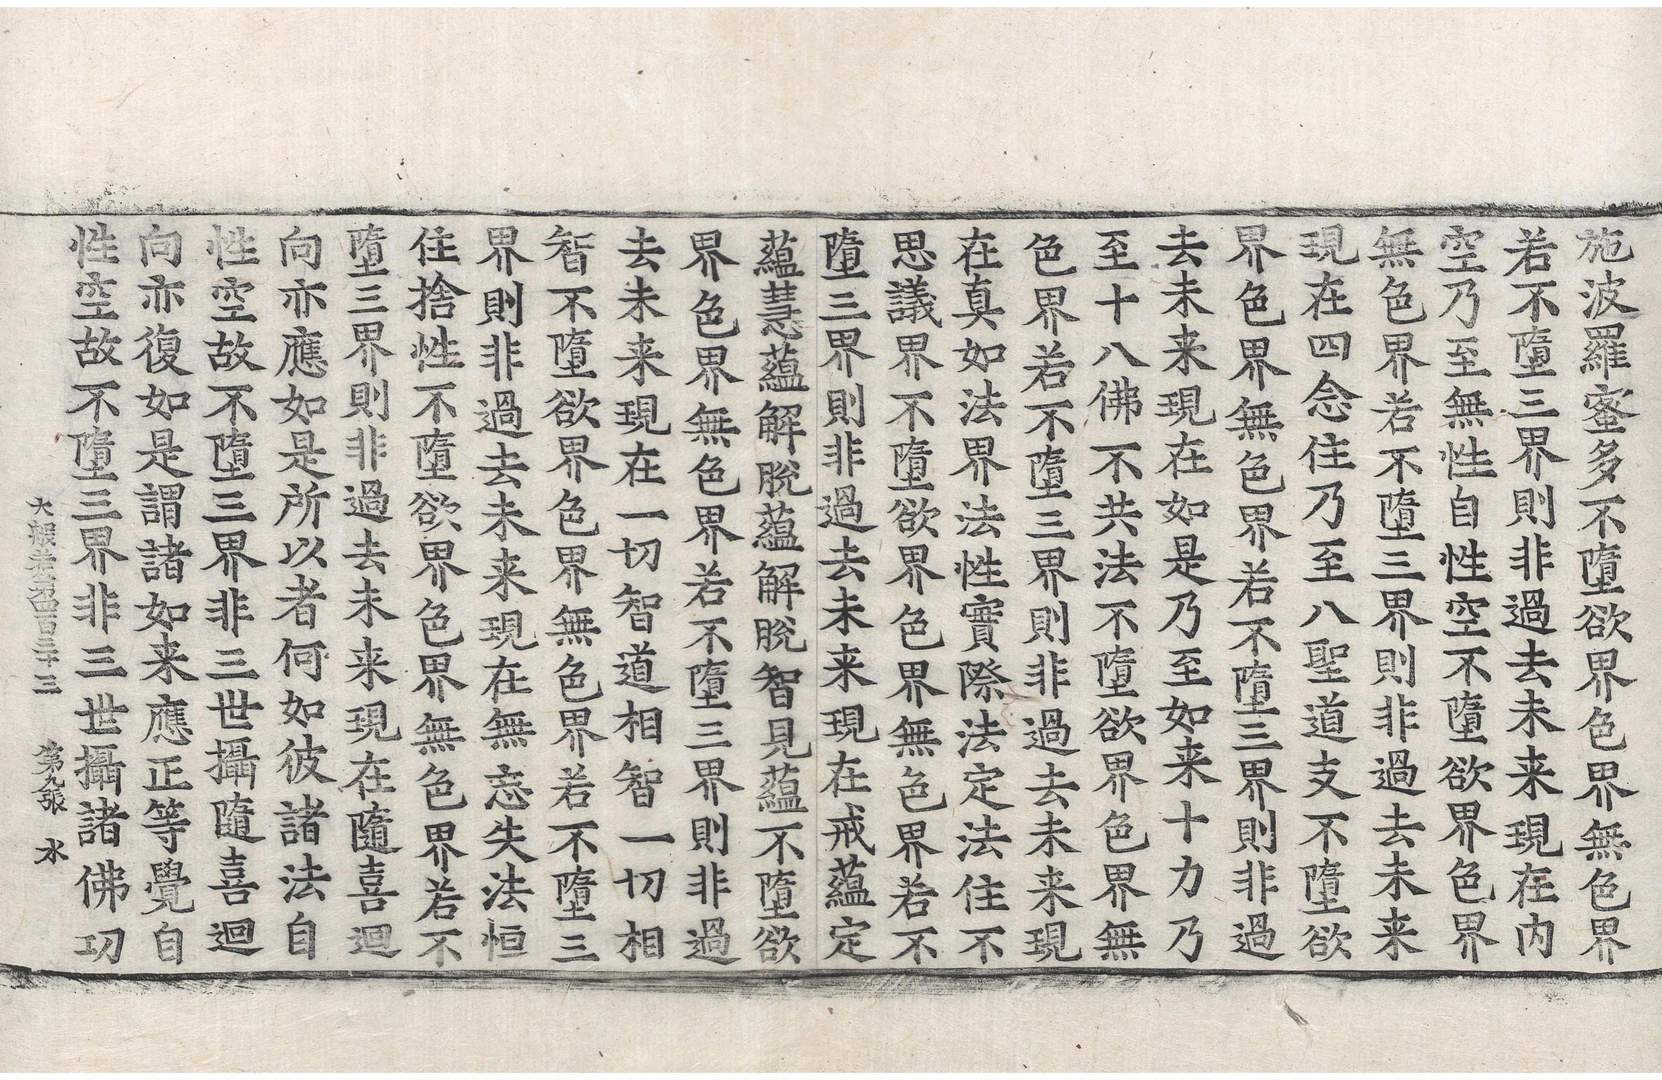 施波羅蜜多不墮欲界色界無色界
若不墮三界則非過去未来現在内
空乃至無性自性空不墮欲界色界
無色界若不墮三界則非過去未来
現在四念住乃至八聖道支不墮欲
界色界無色界若不墮三界則非過
去未来現在如是乃至如来十力乃
至十八佛不共法不墮欲界色界無
色界若不墮三界則非過去未来現
在真如法界法性實際法定法住不
思議界不墮欲界色界無色界若不
墮三界則非過去未来現在戒蘊定
蘊慧蘊解脫蘊解脫智見蘊不墮欲
界色界無色界若不墮三界則非過
去未来現在一切智道相智一切相
智不墮欲界色界無色界若不墮三
界則非過去未来現在無忘失法恒
住捨性不墮欲界色界無色界若不
墮三界則非過去未来現在隨喜迴
向亦應如是所以者何如彼諸法自
性空故不墮三界非三世攝隨喜迴
向亦復如是謂諸如来應正等覺自
性空故不墮三界非三世攝諸佛功
大般若第四百三十三 第九張 水